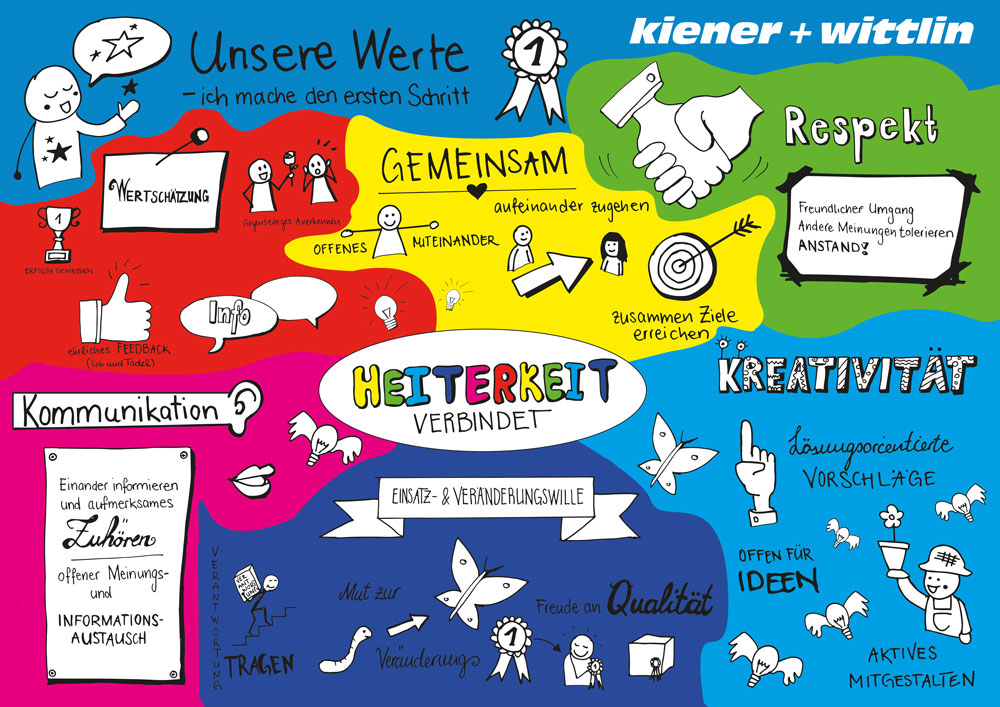 Unsere Werte
– ich mache den ersten Schritt
1
kiener + wittlin
WERTSCHÄTZUNG
Gegenseitiges Anerkennen
1
ERFOLGE GENIESSEN
ehrliches FEEDBACK
(Lob und Tadel)
Info
GEMEINSAM
aufeinander zugehen
OFFENES MITEINANDER
zusammen Ziele
erreichen
Respekt
Freundlicher Umgang
Andere Meinungen tolerieren
ANSTAND!
HEITERKEIT
VERBINDET
Kommunikation
Einander informieren
und aufmerksames
Zuhören
offener Meinungs-
und
INFORMATIONS-
AUSTAUSCH
EINSATZ- & VERÄNDERUNGSWILLE
VERANTWORTUNG
VER
ANT
WORT
UNG
TRAGEN
Mut zur
Veränderung
Freude an Qualität
1
KREATIVITÄT
Lösungsorientierte
VORSCHLÄGE
OFFEN FÜR
IDEEN
AKTIVES
MITGESTALTEN